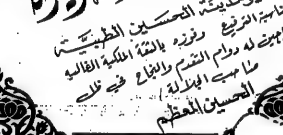 مدينة الحسين الطبية
بمناسبة الترفيع وفوزه بالثقة الملكية الغالية
راجين له دوام التقدم والنجاح في ظل
صاحب الجلالة
الحسين المعظم